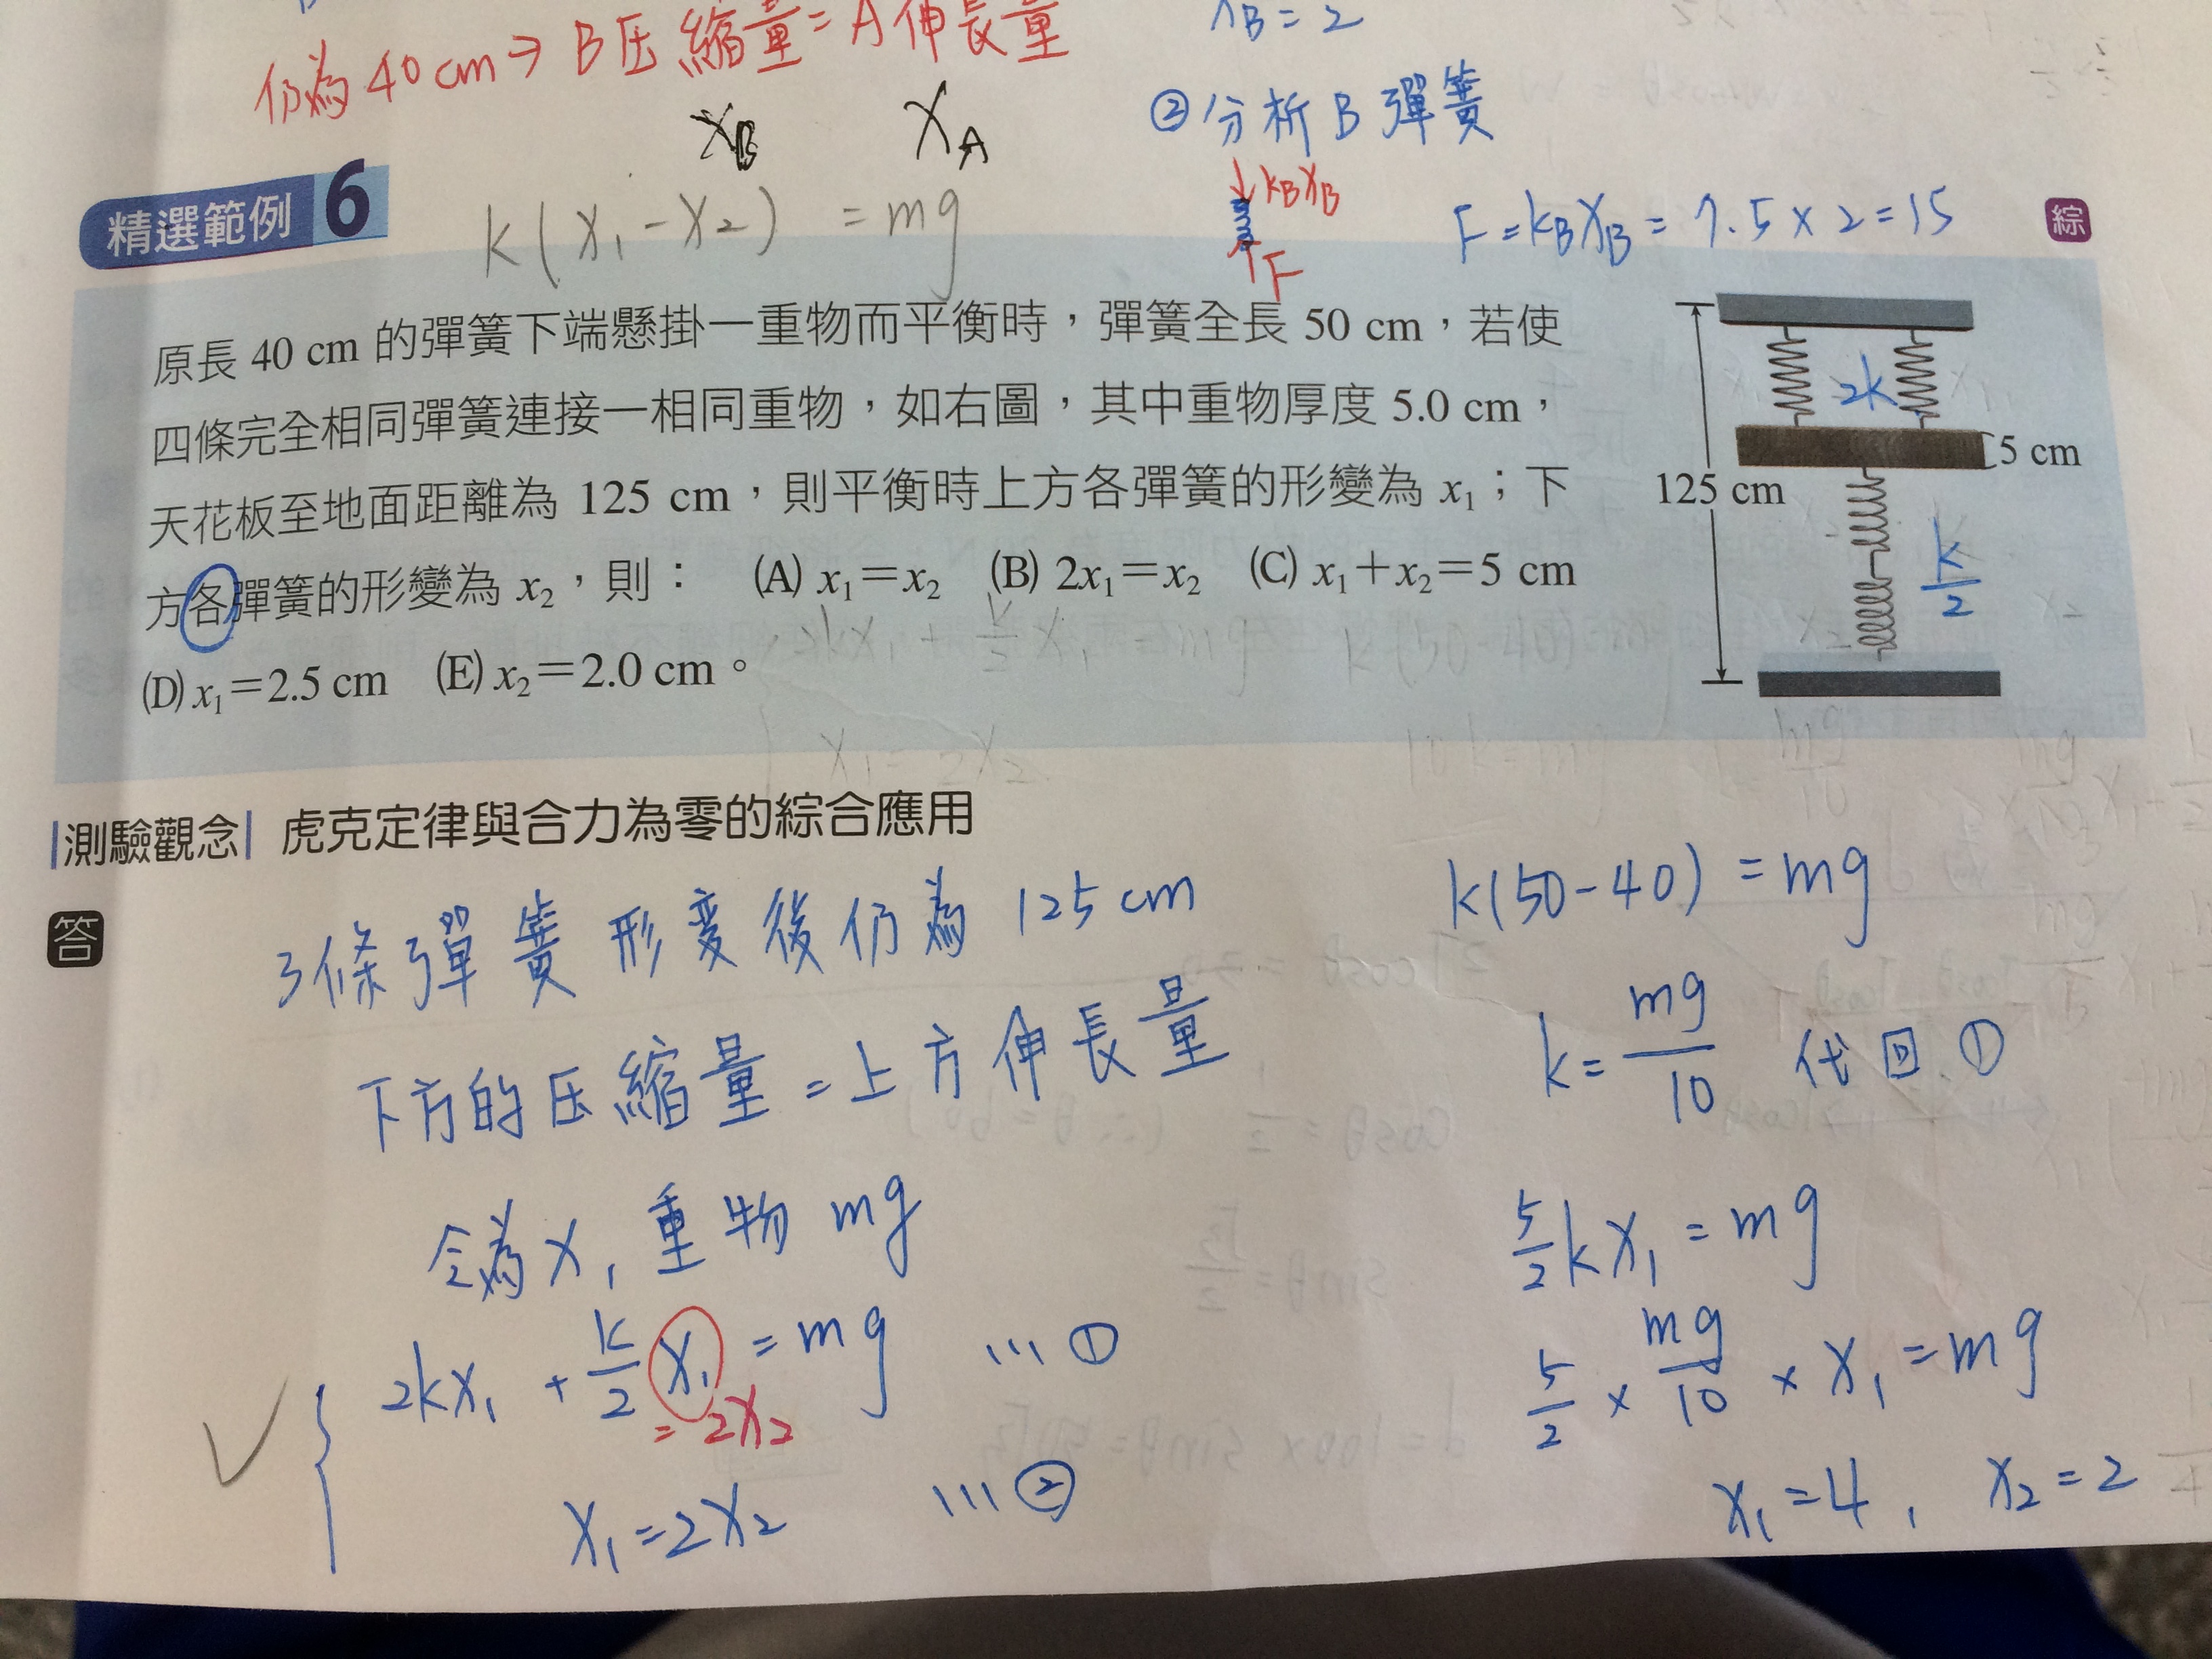 仍為40cm→B压縮量=A伸長量
xB xA
xB=2
②分析B彈簧
kBxB
F
F=kBxB=7.5×2=15
精選範例 6
k(x₁-x₂)=mg
綜
原長 40 cm 的彈簧下端懸掛一重物而平衡時，彈簧全長 50 cm，若使
四條完全相同彈簧連接一相同重物，如右圖，其中重物厚度 5.0 cm，
天花板至地面距離為 125 cm，則平衡時上方各彈簧的形變為 x₁；下
方各彈簧的形變為 x₂，則： (A) x₁＝x₂ (B) 2x₁＝x₂ (C) x₁＋x₂＝5 cm
(D) x₁＝2.5 cm (E) x₂＝2.0 cm。
2k
5 cm
125 cm
k/2
2kx₁+k/2x₁=mg
k(50-40)
x₁=2x₂
10k=mg
測驗觀念 虎克定律與合力為零的綜合應用
答
3條彈簧形变後仍為125cm
下方的压縮量=上方伸長量
令為x₁重物mg
2kx₁+k/2x₁=mg …①
=2x₂
x₁=2x₂ …②
k(50-40)=mg
k=mg/10 代回①
5/2kx₁=mg
5/2×mg/10×x₁=mg
x₁=4, x₂=2